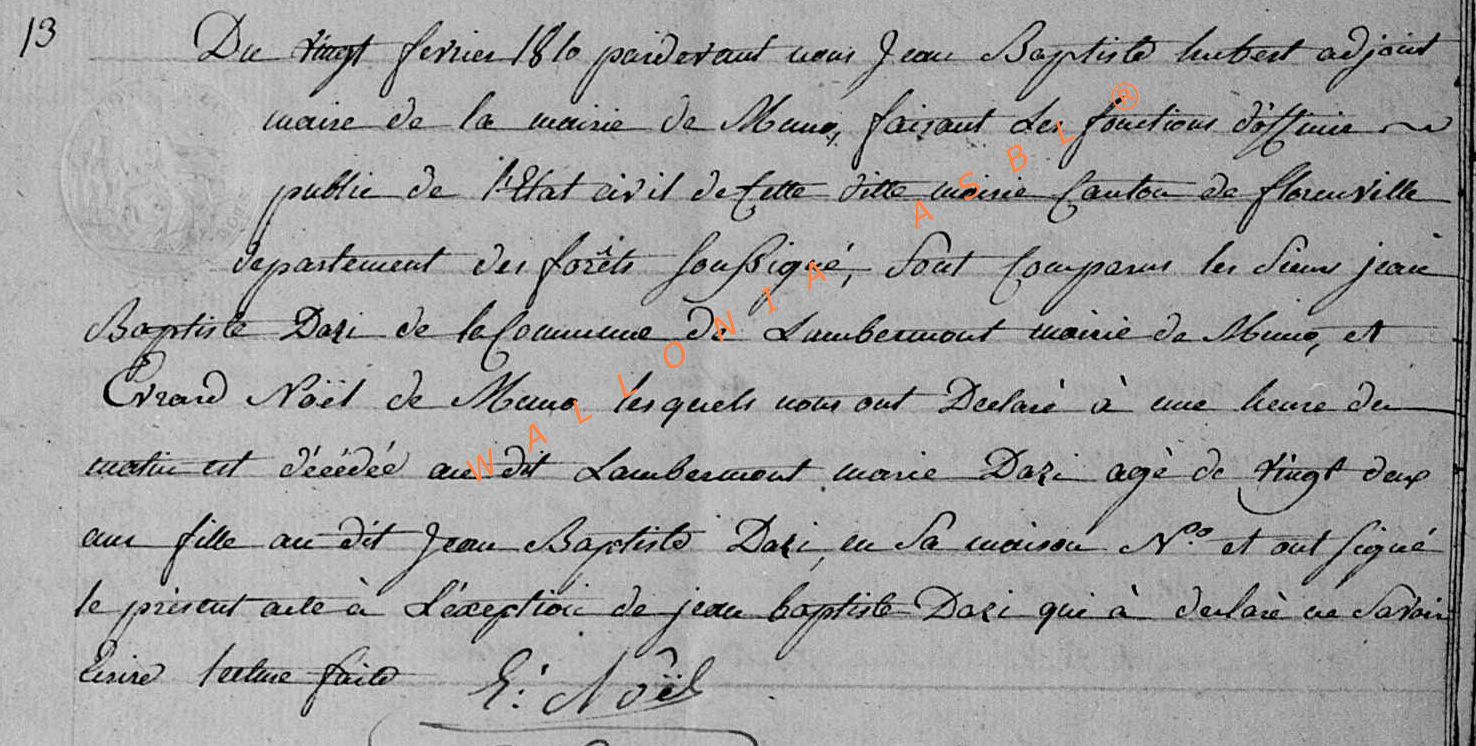 13
Du vingt fevrier 1810 pardevant nous Jean Baptiste hubert adjoint
maire de la mairie de Muno, faisant les fonctions d'officier
public de l'Etat civil de Cette ditte mairie Canton de florenville
departement des forêts soussigné, sont Comparus les Sieurs jean
Baptiste Dazi de la Commune de Lambermont mairie de Muno, et
Evrard Noël de Muno lesquels nous ont Declaré à une heure du
matin est décédée au dit Lambermont marie Dazi agé de vingt deux
ans fille au dit Jean Baptiste Dazi, en Sa maison N.o et ont signé
le présent acte à L'exeption de jean baptiste Dazi qui à declaré ne Savoir
Ecrire lecture faite E: Noël
WALLONIA ASBL ®